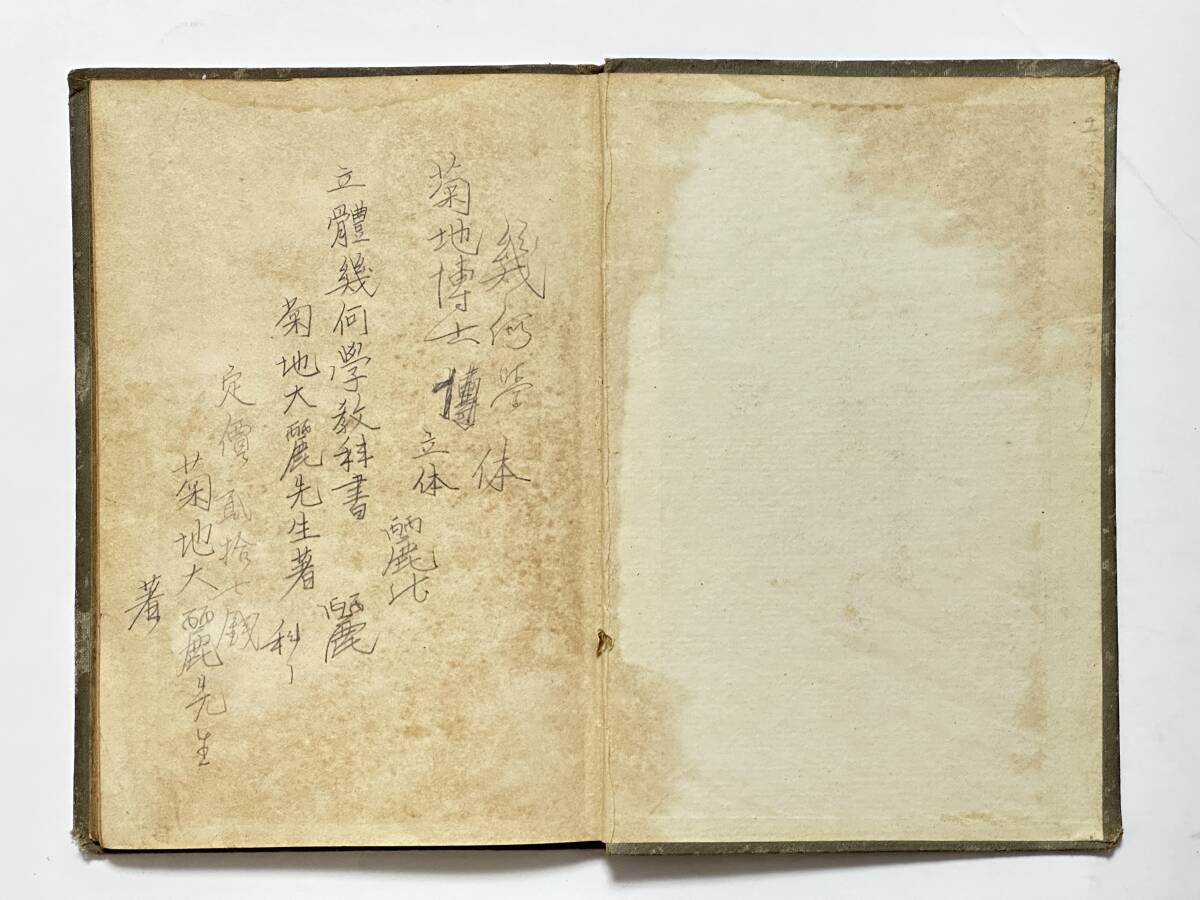 幾何学 体
菊地博士 博
立体
麗比
立體幾何學教科書 麗
菊地大麗先生著 科
定價貳拾七銭
菊地大麗先生
著